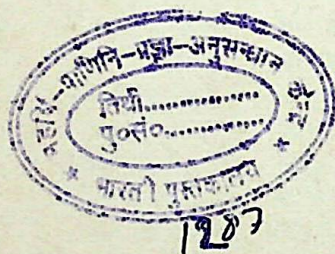 महर्षि-पाणिनि-प्रज्ञा-अनुसन्धान केन्द्र
तिथी................
पु०सं०................
* भारती पुस्तकालय *
1287